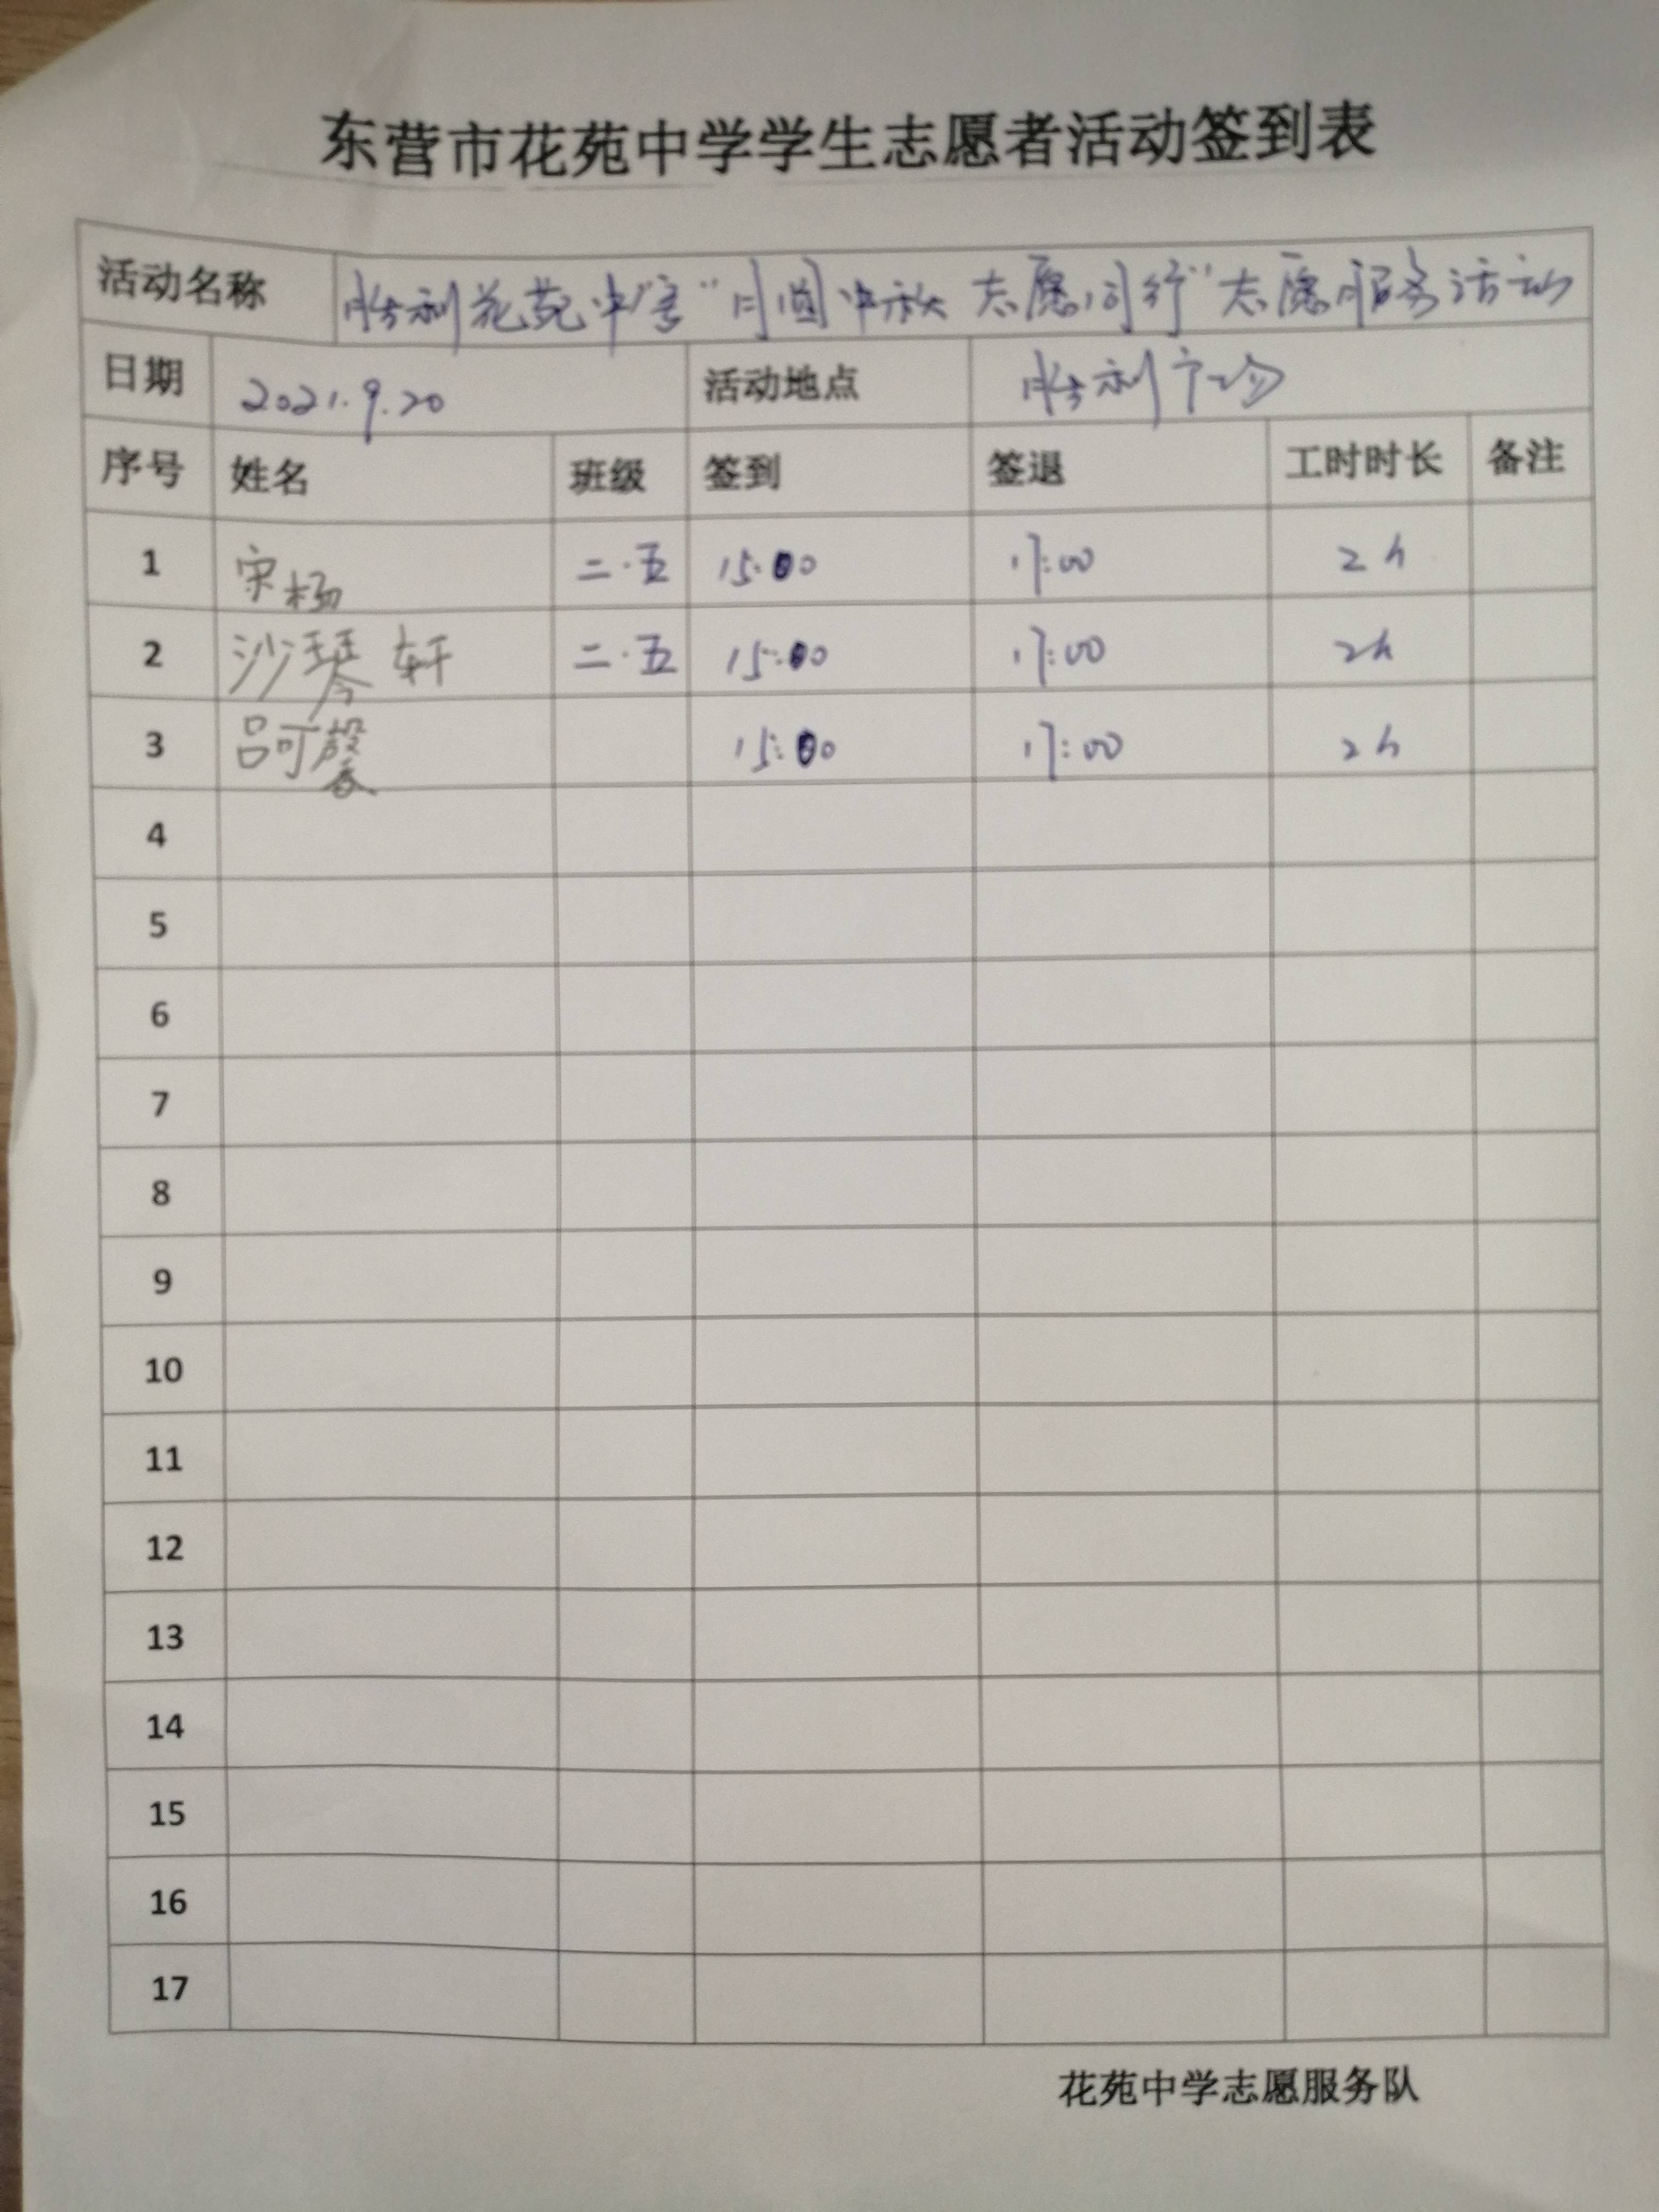 东营市花苑中学学生志愿者活动签到表
活动名称 胜利花苑中学“月圆中秋 志愿同行”志愿服务活动
日期 2021.9.20 活动地点 胜利广场
序号 姓名 班级 签到 签退 工时时长 备注
1 宋杨 二.五 15:00 17:00 2h
2 沙琴轩 二.五 15:00 17:00 2h
3 吕可馨 15:00 17:00 2h
4
5
6
7
8
9
10
11
12
13
14
15
16
17
花苑中学志愿服务队